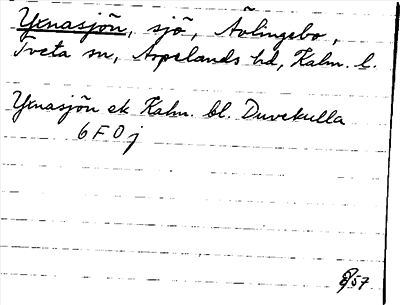 Yxnasjön, sjö, Åvlingebo,
Tveta sn, Aspelands hd, Kalm. l.
Yxnasjön ek Kalm. bl. Duvekulla
6 F 0 j
57